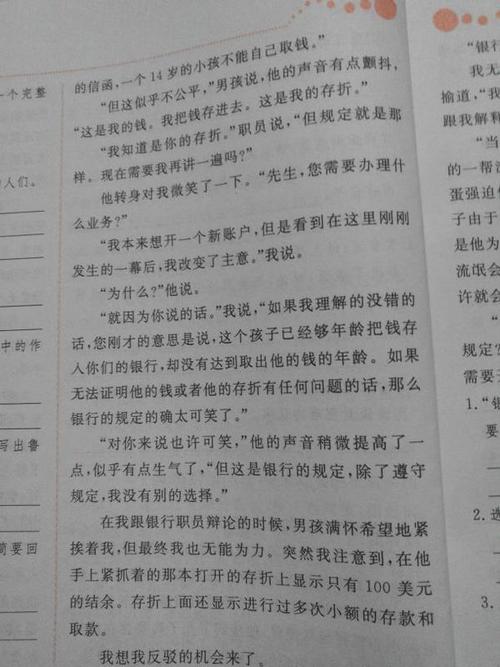 的信函，一个 14 岁的小孩不能自己取钱。”
“但这似乎不公平，”男孩说，他的声音有点颤抖，
“这是我的钱。我把钱存进去。这是我的存折。”
“我知道是你的存折。”职员说，“但规定就是那
样。现在需要我再讲一遍吗？”
他转身对我微笑了一下。“先生，您需要办理什
么业务？”
“我本来想开一个新账户，但是看到在这里刚刚
发生的一幕后，我改变了主意。”我说。
“为什么？”他说。
“就因为你说的话。”我说，“如果我理解的没错的
话，您刚才的意思是说，这个孩子已经够年龄把钱存
入你们的银行，却没有达到取出他的钱的年龄。如果
无法证明他的钱或者他的存折有任何问题的话，那么
银行的规定的确太可笑了。”
“对你来说也许可笑，”他的声音稍微提高了一
点，似乎有点生气了，“但这是银行的规定，除了遵守
规定，我没有别的选择。”
在我跟银行职员辩论的时候，男孩满怀希望地紧
挨着我，但最终我也无能为力。突然我注意到，在他
手上紧抓着的那本打开的存折上显示只有 100 美元
的结余。存折上面还显示进行过多次小额的存款和
取款。
我想我反驳的机会来了。
一个完整
人们。
中的作
写出鲁
简要回
“银行
我无
揄道，“我
跟我解释
“当
的一帮流
蛋强迫他
子由于
是他为
流氓会
许就会
“
规定
需要
1.“银
要
2.选
3.